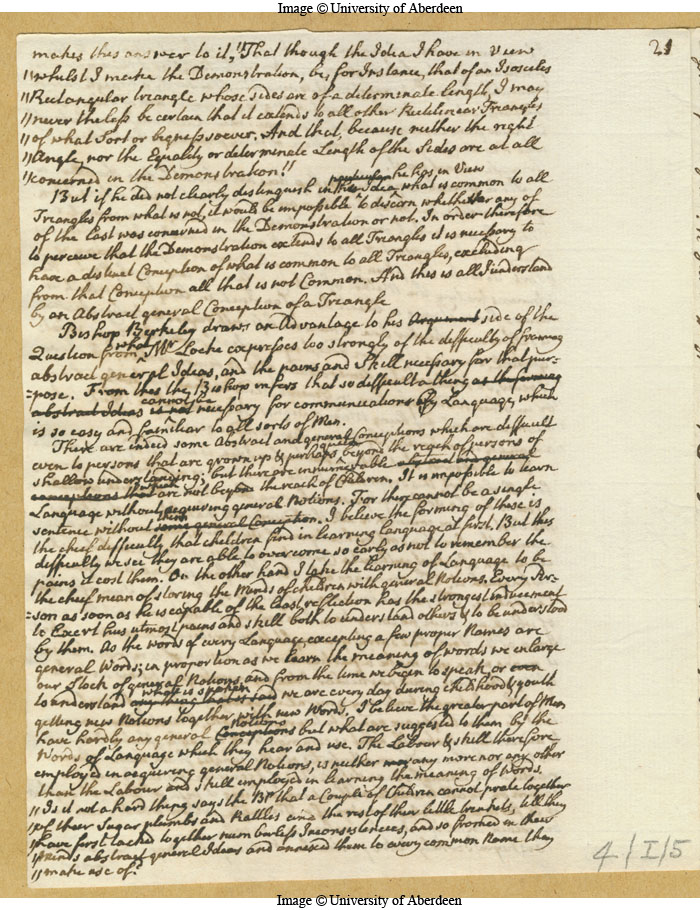 Image © University of Aberdeen
21
makes this answer to it, "That though the Idea I have in View
"whilst I make the Demonstration, be, for Instance, that of an Isosceles
"Rectangular triangle whose sides are of a determinate length, I may
"never the less be certain that it extends to all other Rectilinear Triangles
"of what Sort or bigness soever. And that, because neither the right
"Angle, nor the Equality or determinate Length of the Sides are at all
"concerned in the Demonstration."
he has in View
But if he did not clearly distinguish in the Idea what is common to all
Triangles from what is not, it would be impossible to discern whether any of
of the last was concerned in the Demonstration or not. In order therefore
to perceive that the Demonstration extends to all Triangles it is necessary to
have a distinct Conception of what is common to all Triangles, excluding
from that Conception all that is not Common. And this is all I understand
by an Abstract general Conception of a Triangle
Bishop Berkeley draws an Advantage to his Argument side of the
what
Question from Mr Locke expresses too strongly of the difficulty of framing
abstract general Ideas, and the pains and Skill necessary for that pur=
=pose. From this the Bishop infers that so difficult a thing as the forming
cannot be
abstract Ideas is not necessary for communications by Language, which
is so easy and familiar to all sorts of Men.
There are indeed some Abstract and general Conceptions which are difficult
even to persons that are grown up & perhaps beyond the reach of persons of
shallow understanding; but there are innumerable abstract and general
which
conceptions that are not beyond the reach of Children. It is impossible to learn
Language without acquiring general Notions. For there cannot be a single
them
sentence without some general Conception. I believe the forming of these is
the chief difficulty that children find in learning language at first. But this
difficulty we see they are able to overcome so early as not to remember the
pains it cost them. On the other hand I take the learning of Language to be
the chief mean of storing the Minds of children with general Notions. Every Per=
=son as soon as he is capable of the least reflection has the strongest inducement
to Exert his utmost pains and skill both to understand others & to be understood
by them. As the words of every Language, excepting a few proper Names are
general Words; in proportion as we learn the meaning of words we enlarge
our Stock of general Notions, and from the time we begin to speak, or even
what is spoken
to understand any thing that is said we are every day during childhood & youth
getting new Notions together with new Words. I believe the greater part of Men
Notions
have hardly any general Conceptions but what are suggested to them by the
Words of Language which they hear and use. The Labour & skill therefore
employed in acquiring general Notions, is neither more nor any other
than the Labour and skill employed in learning the meaning of Words.
"Is it not a hard thing says the Bp that a Couple of Children cannot prate together
"of their Sugar plumbs and Rattles and the rest of their little trinkets, till they
"have first tacked together numberless Inconsistencies, and so framed in their
"minds abstract general Ideas and annexed them to every common Name they
"make use of?
4/I/5
Image © University of Aberdeen